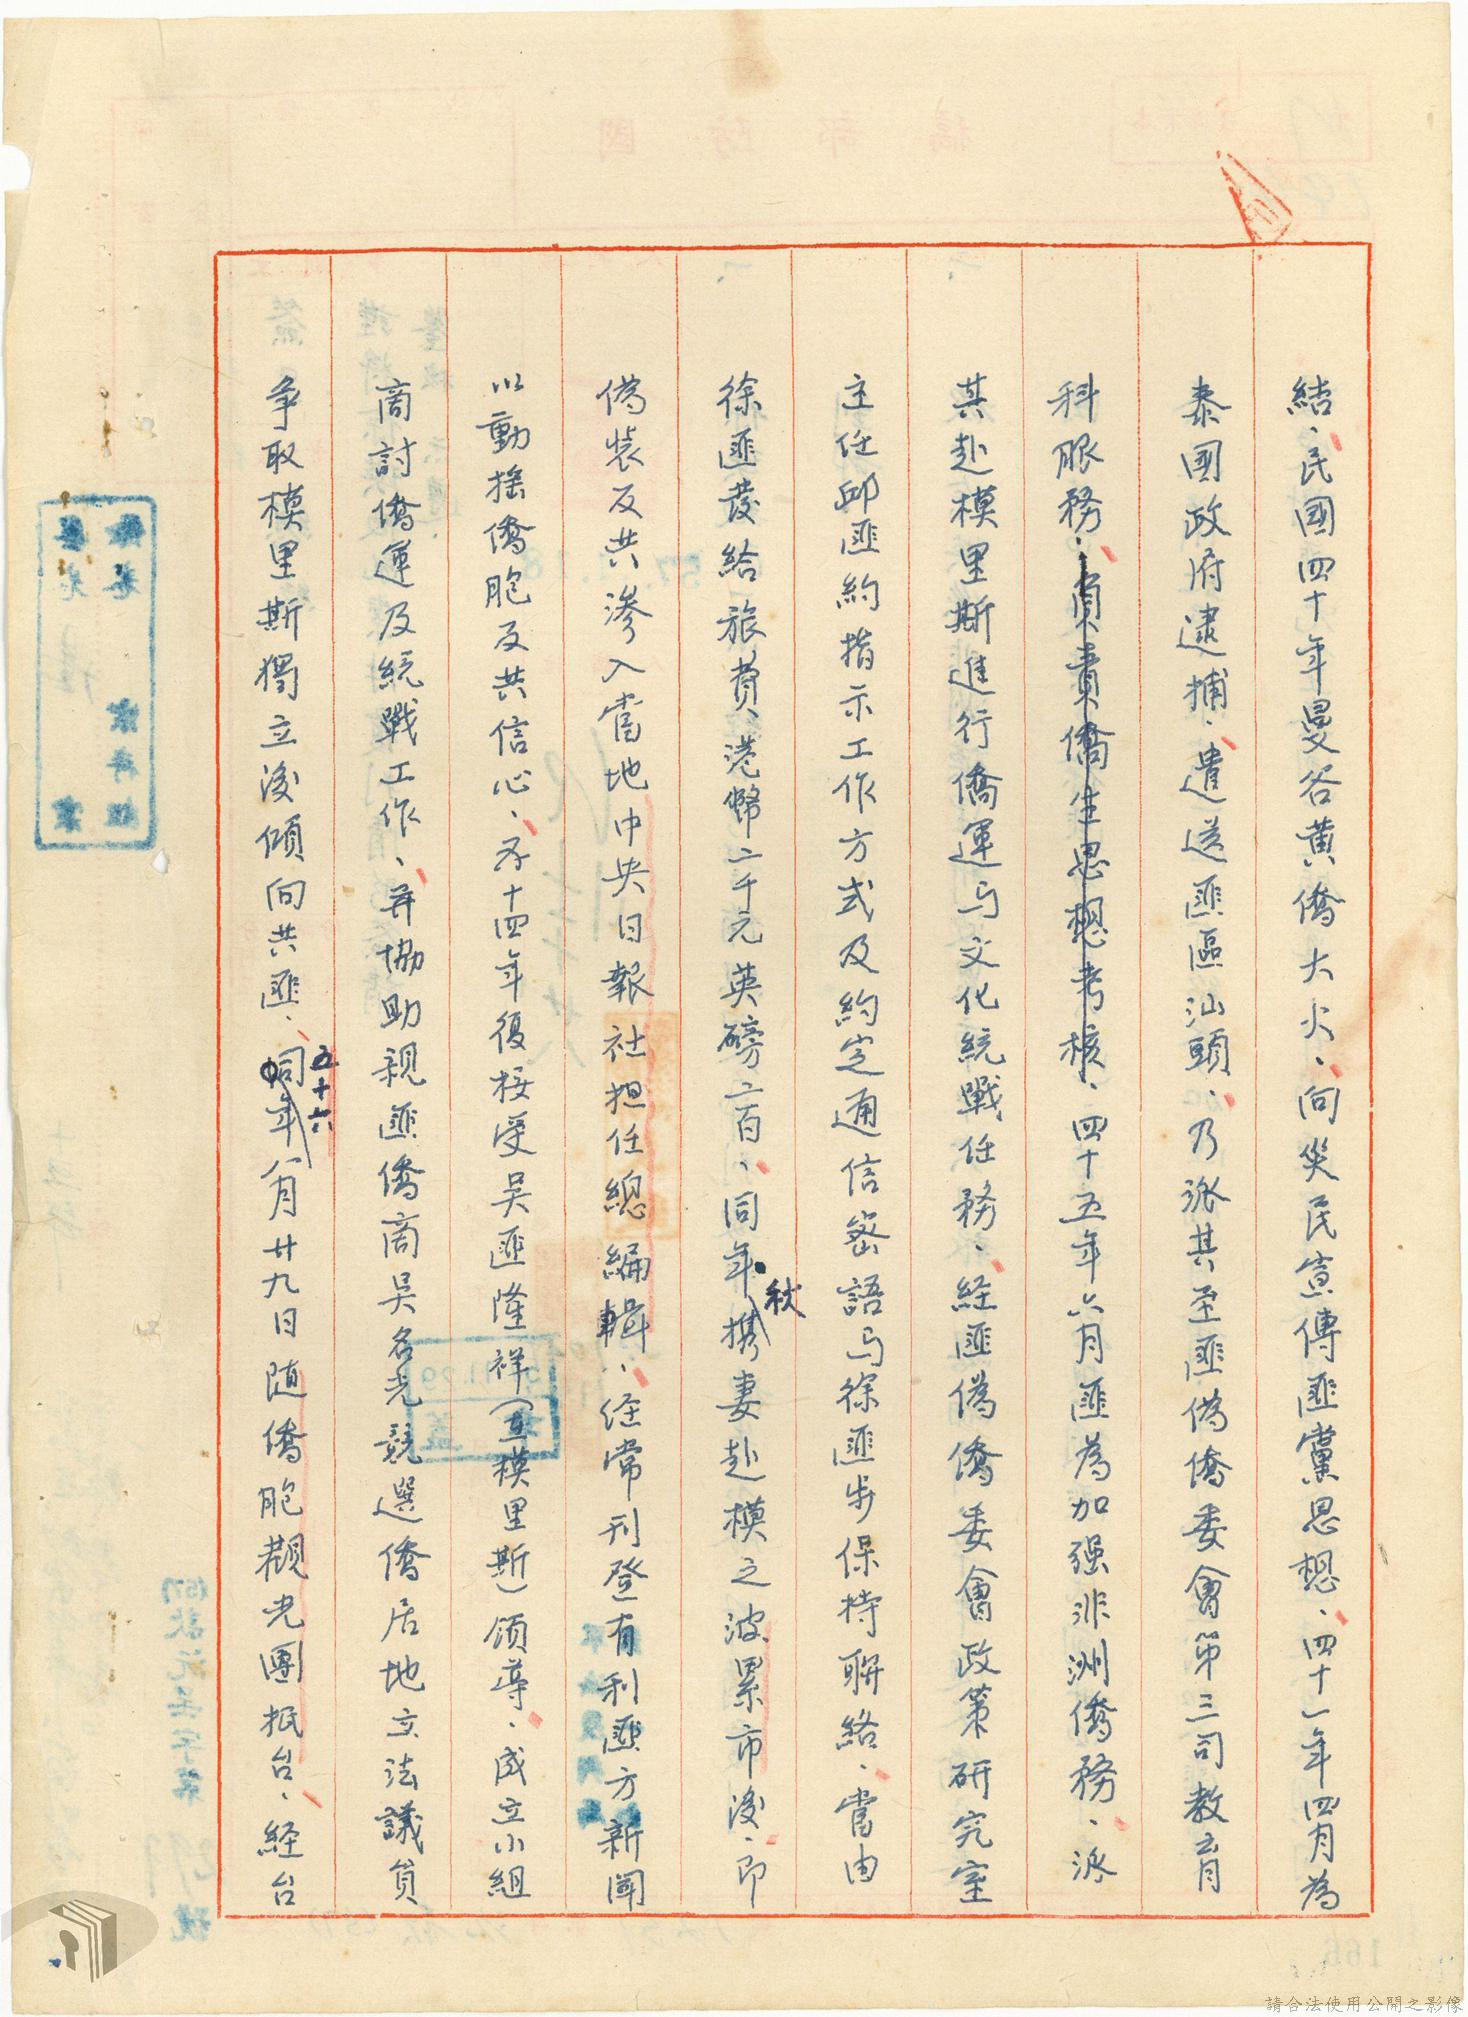 結、民國四十年曼谷黃僑大火、向災民宣傳匪黨思想、四十一年四月為
泰國政府逮捕、遣送匪區汕頭、乃派其至匪偽僑委會第三司教育
科服務、負責僑生思想考核、四十五年六月匪為加强非洲僑務、派
其赴模里斯進行僑運与文化統戰任務、経匪偽僑委會政策研究室
主任邱匪約指示工作方式及約定通信密語与徐匪步保持聯絡、當由
徐匪發給旅費、港幣二千元英磅二百、同年秋携妻赴模之波累市後、即
偽裝反共滲入當地中央日報社担任總編輯、経常刊登有利匪方新聞
以動搖僑胞反共信心、五十四年復接受吳匪隆祥(在模里斯)領導、成立小組
商討僑運及統戰工作、并協助親匪僑商吳名光競選僑居地立法議員
争取模里斯獨立後傾向共匪、同年五十六八月廿九日随僑胞觀光團抵台、経台
請合法使用公開之影像